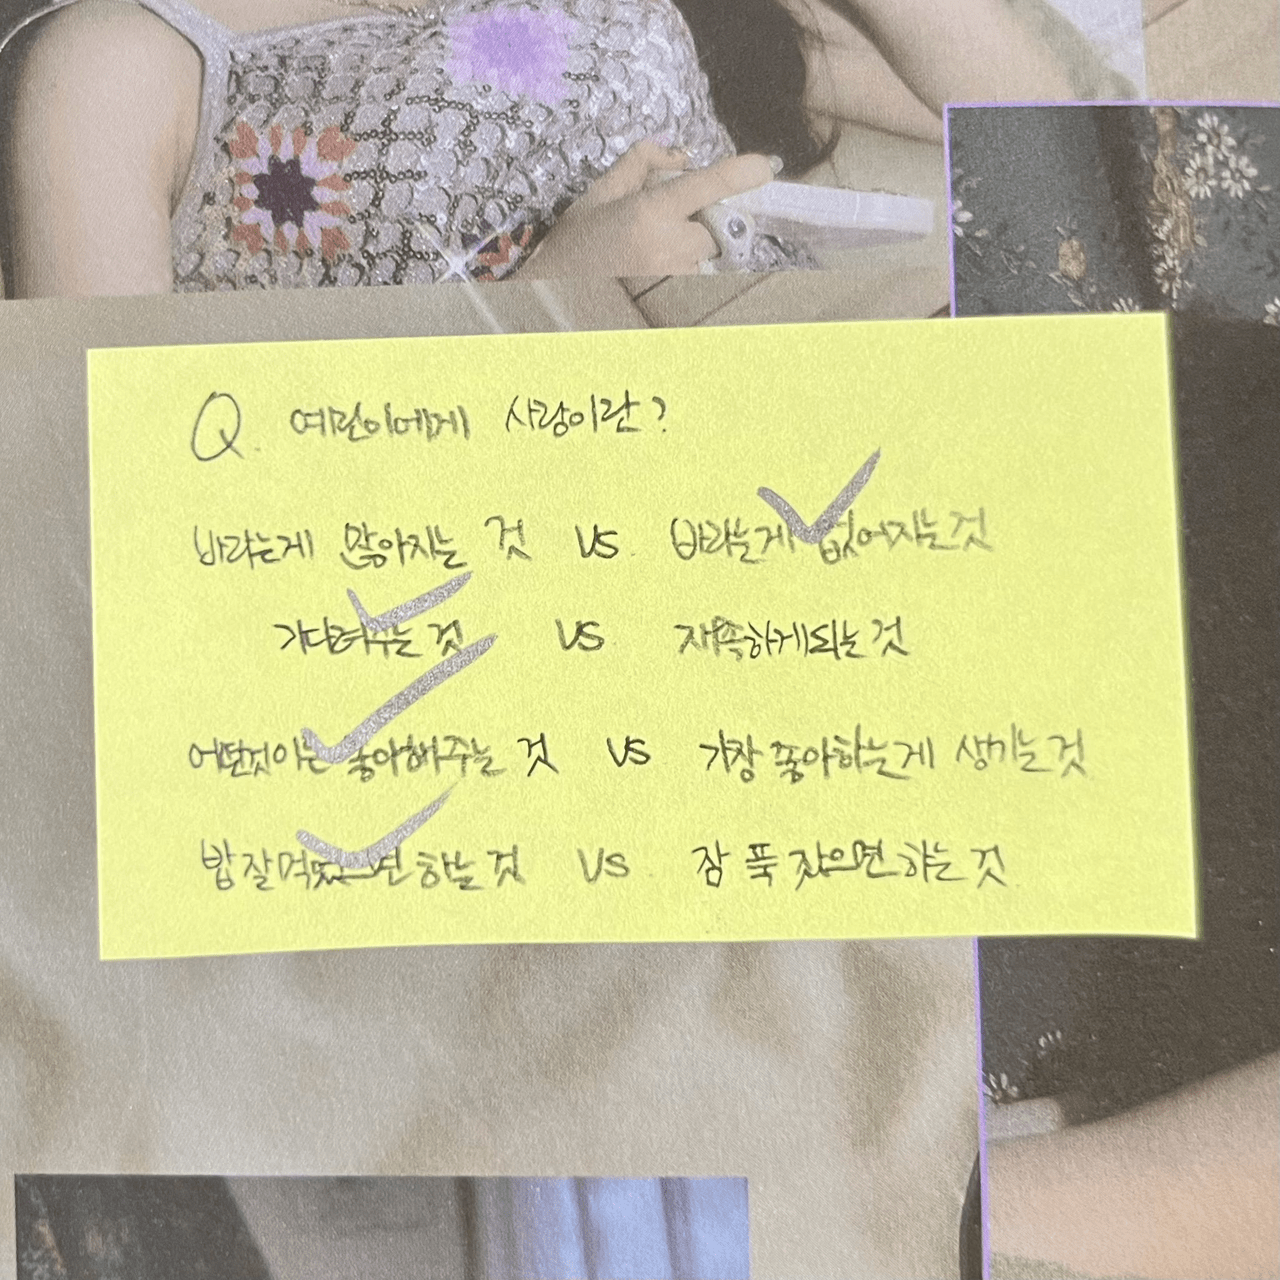 Q. 예린이에게 사랑이란?
바라는게 많아지는 것 VS. 바라는게 없어지는 것
기다려주는 것 VS 재촉하게되는 것
어떤것이든 좋아해주는 것 VS 가장 좋아하는게 생기는 것
밥 잘 먹었으면 하는 것 VS 잠 푹 잤으면 하는 것